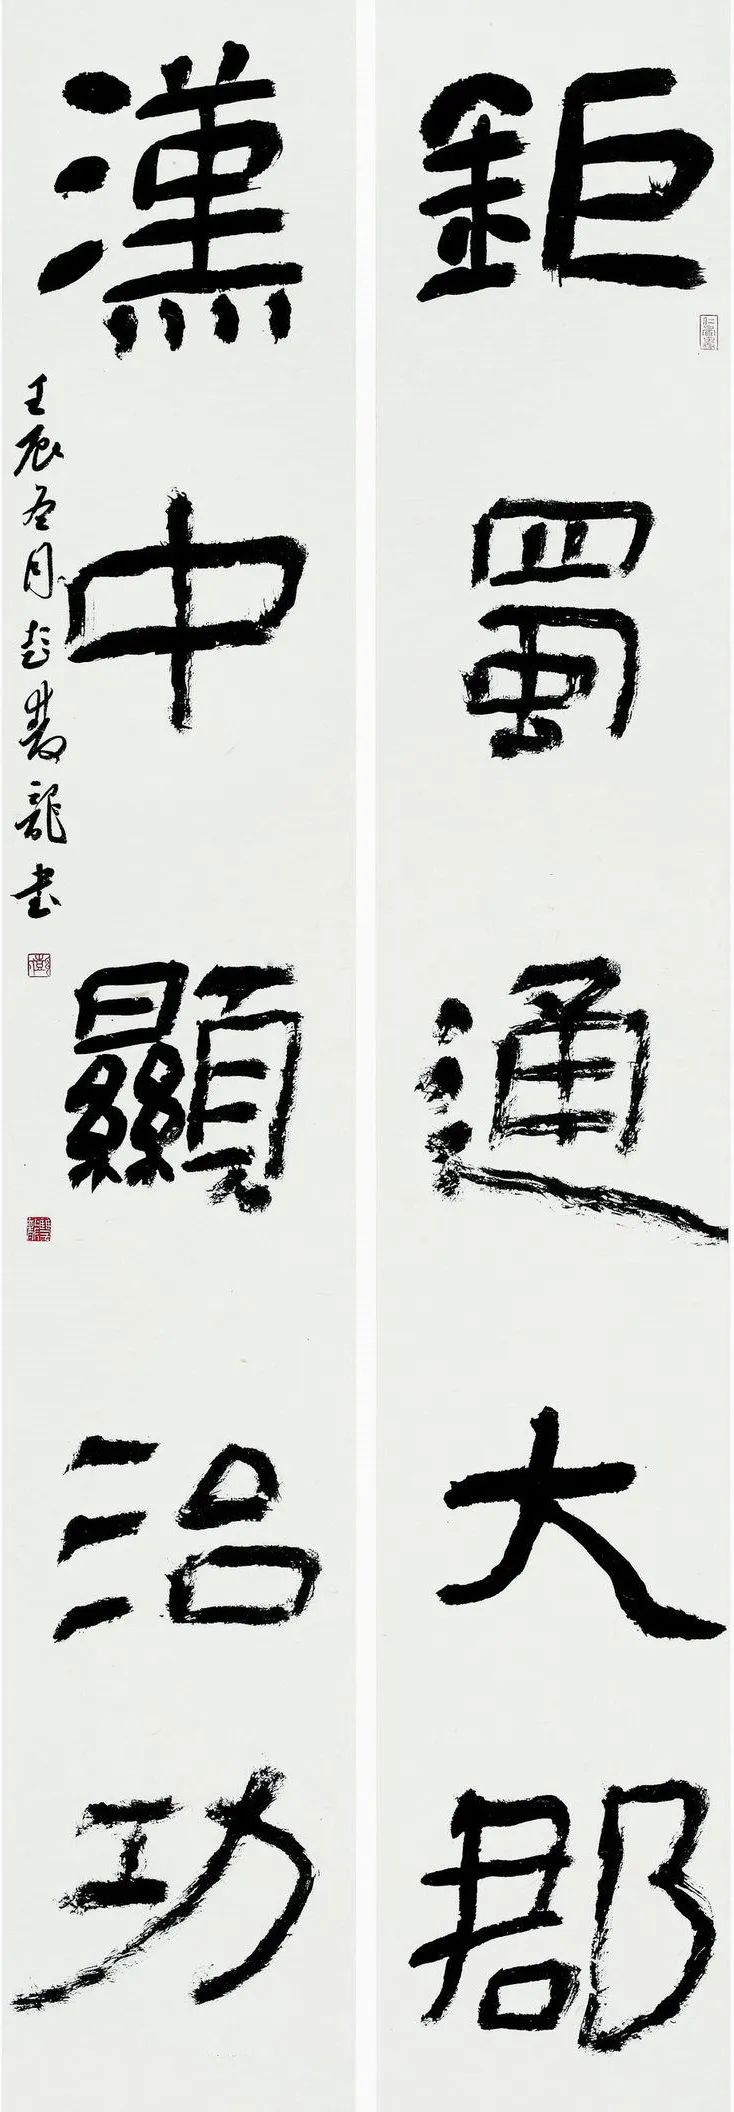 鉅蜀通大郡
漢中顯治功
壬辰冬月彭雙龍書